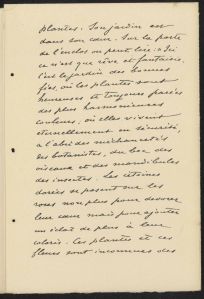 plantes. Son jardin est
dans son cœur. Sur la porte
de l'enclos on peut lire : « Ici
ce n'est que rêve et fantaisie.
C'est le jardin des bonnes
fées, où les plantes sont
heureuses et toujours parées
des plus harmonieuses
couleurs, où elles vivent
éternellement en sécurité,
à l'abri des méchancetés
des botanistes, du bec des
oiseaux et des mandibules
des insectes. Les cétoines
dorées se posent sur les
roses non plus pour dévorer
leur cœur mais pour ajouter
un éclat de plus à leur
coloris. Ces plantes et ces
fleurs sont inconnues des